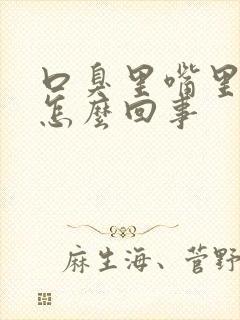 口臭里嘴里
怎麽回事
麻生海、菅野